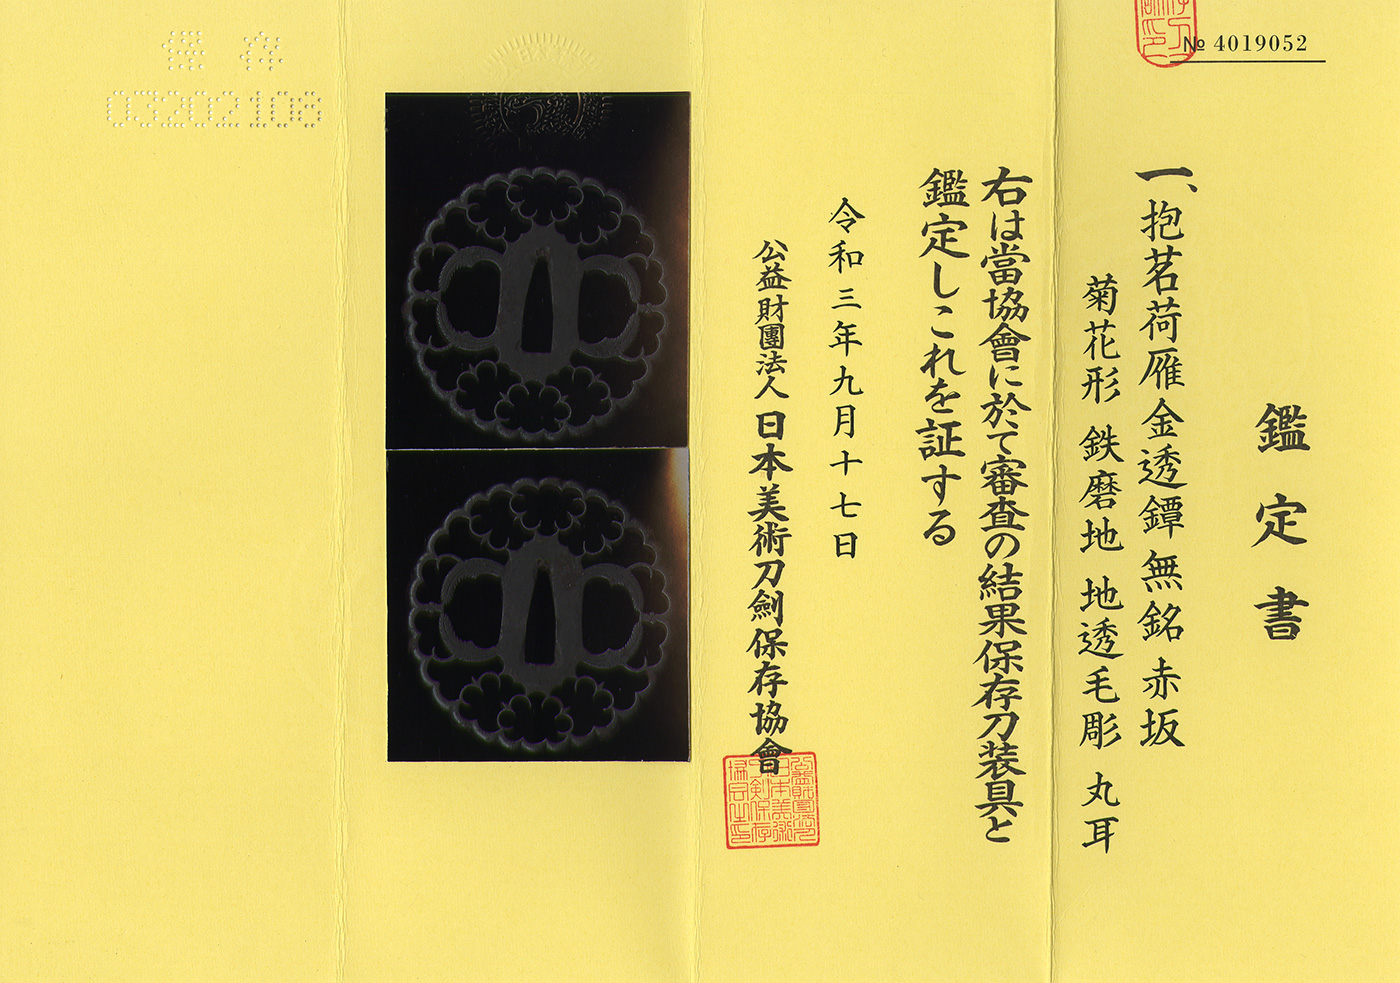 № 4019052
鑑定書
一、抱茗荷雁金透鐔 無銘 赤坂
菊花形 鉄磨地 地透毛彫 丸耳
右は當協會に於て審査の結果保存刀装具と
鑑定しこれを証する
令和三年九月十七日
公益財團法人 日本美術刀劍保存協會
保存
03202108